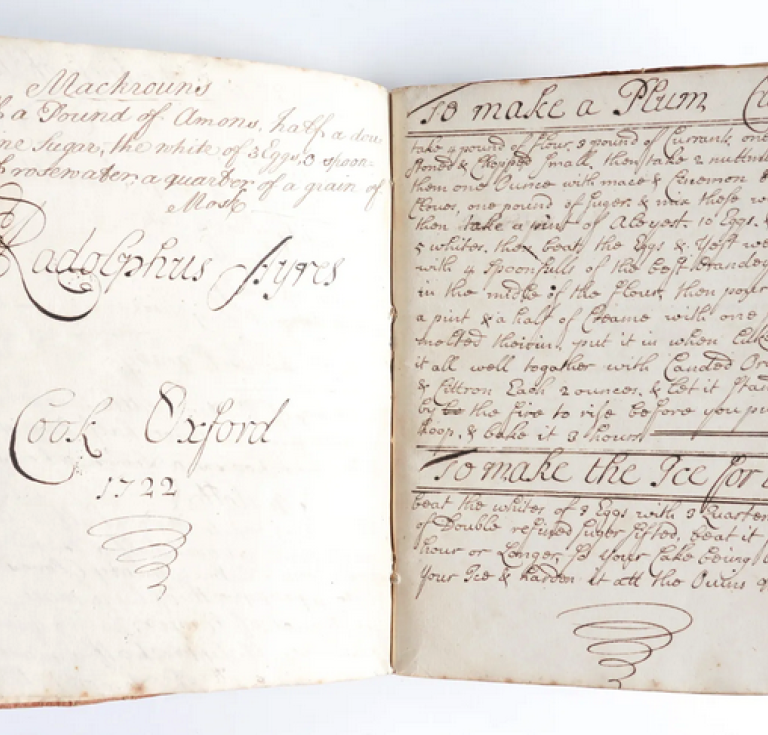 Mackrouns
a Pound of Amons, half a dou
ine Sugar, the white of 3 Eggs, 3 spoon=
rosewater, a quarter of a grain of
Mosk
Radolphus Ayres
Cook Oxford
1722
To make a Plum
take 4 pound of flour, 3 pound of Currants, one
stoned & Chopped small, then take 2 nutm
them one Ounce with mace & Cinemon
Cloves, one pound of Suger, & mix these w
then take a pint of Aleyest, 10 Eggs, &
5 whites, then beat the Eggs & Yest we
with 4 Spoonfulls of the best Brandey
in the midle of the flour, then pour
a pint & a half of Creame with one
melted theirin, put it in when Luke
it all well together with Canded Or
& Cittron Each 2 ounces, & Let it Stan
by the fire to rise before you pu
hoop, & bake it 3 hours
To make the Ice for a
beat the whites of 3 Eggs with 3 Quarter
of Double refined Suger sifted, beat it
hour or Longer, so your Cake being
your Ice & harden it att the Ovens